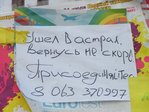 Ушел в астрал,
Вернусь не скоро
Присоединяйтесь
8 063 370997